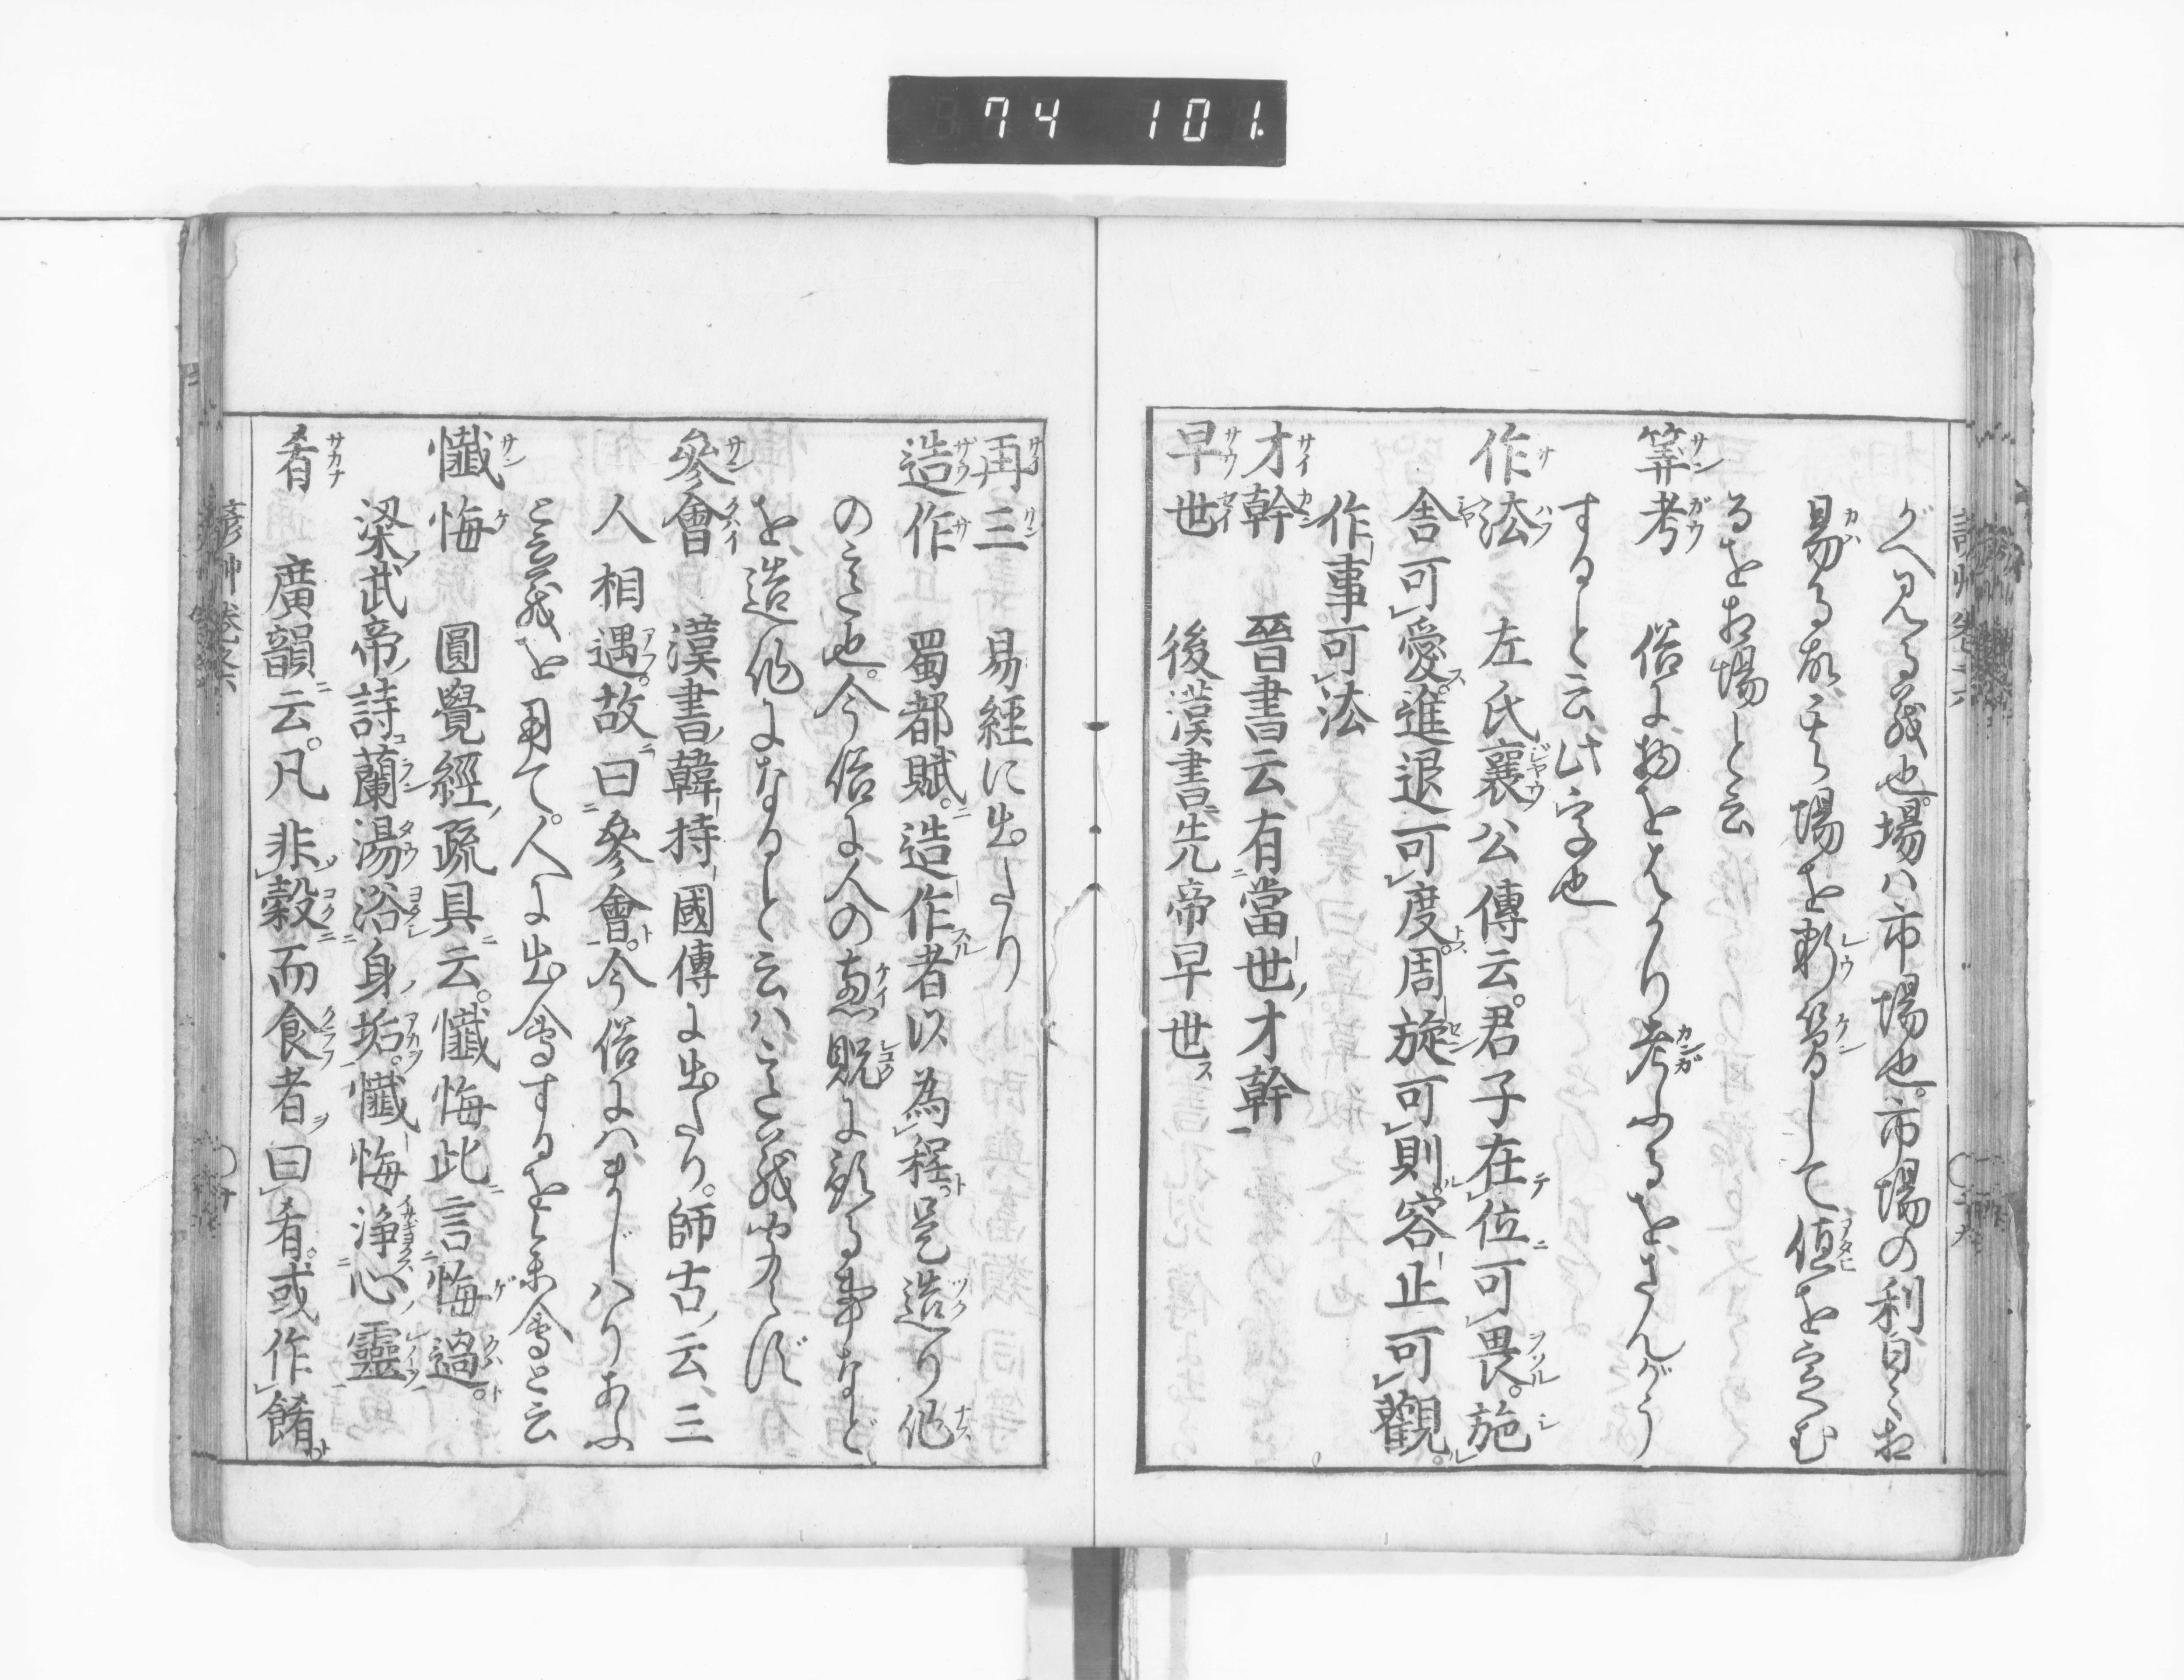 74 101.
がへ見る義也。場ハ市場也。市場の利自ら相
易る故に其場を料簡して値を定む
るを相場と云
筭考 俗に物をはかり考ふるをさんがう
すると云此字也
作法 左氏襄公傳云。君子在位可畏。施
舎可愛。進退可度。周旋可則。容止可觀。
作事可法
才幹 晉書云有當世才幹
早世 後漢書先帝早世
再三 易經に出たり
造作 蜀都賦。造作者以為程。是造り作
のこと也。今俗に人の恵貺に預る事など
を造作になると云ハこの義
參會 漢書韓持國傳に出たり。師古云三
人相遇。故曰參會。今俗にハまじハりあふ
こと義を用て。人に出會するを参會と云
懺悔 圓覺經疏具云。懺悔此言悔過。
梁武帝詩蘭湯浴身垢。懺悔浄心靈
肴 廣韻云。凡非穀而食者曰肴。或作餚
諺艸 巻之六